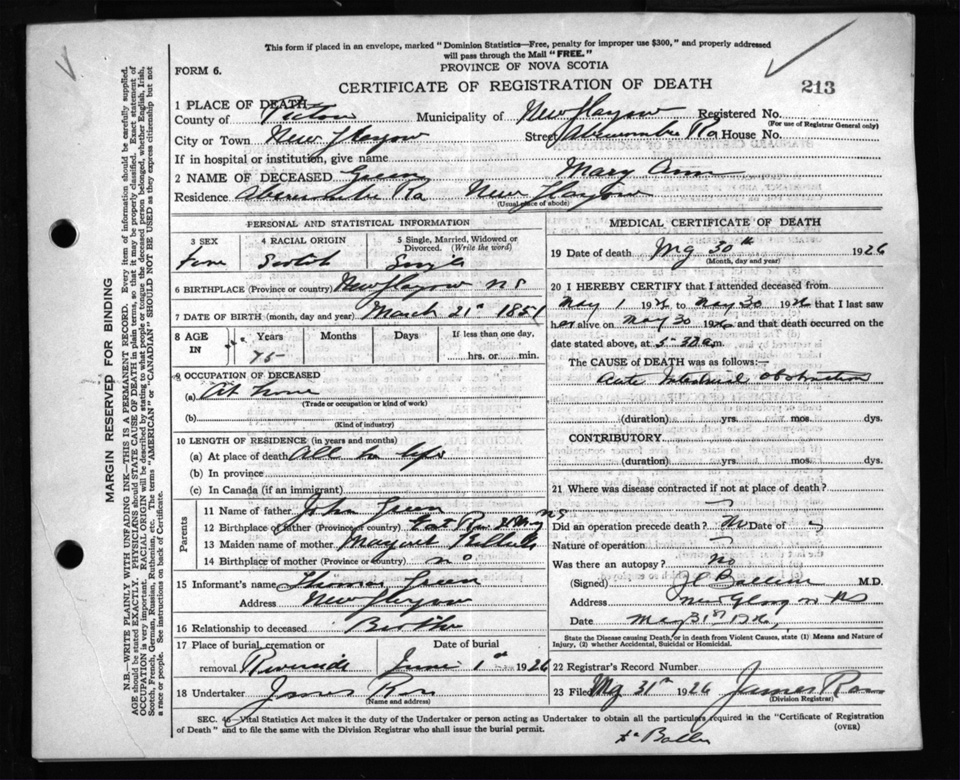 This form if placed in an envelope, marked "Dominion Statistics—Free, penalty for improper use $300," and properly addressed
will pass through the Mail "FREE."
FORM 6.
PROVINCE OF NOVA SCOTIA
CERTIFICATE OF REGISTRATION OF DEATH
213
1 PLACE OF DEATH
County of Pictou Municipality of New Glasgow Registered No.
(For use of Registrar General only)
City or Town New Glasgow Street Abercrombie Rd House No.
If in hospital or institution, give name
2 NAME OF DECEASED Green Mary Ann
Residence Abercrombie Rd New Glasgow
(Usual place of abode)
PERSONAL AND STATISTICAL INFORMATION
3 SEX 4 RACIAL ORIGIN 5 Single, Married, Widowed or Divorced. (Write the word)
Scotch Single
6 BIRTHPLACE (Province or country) New Glasgow N S
7 DATE OF BIRTH (month, day and year) March 21st 1851
8 AGE IN Years Months Days If less than one day,
75 hrs. or min.
9 OCCUPATION OF DECEASED
(a) At home
(Trade or occupation or kind of work)
(b)
(Kind of industry)
10 LENGTH OF RESIDENCE (in years and months)
(a) At place of death All her life
(b) In province
(c) In Canada (if an immigrant)
Parents
11 Name of father John Green
12 Birthplace of father (Province or country) East River NS
13 Maiden name of mother Margaret
14 Birthplace of mother (Province or country)
15 Informant's name Thomas Green
Address New Glasgow
16 Relationship to deceased Brother
17 Place of burial, cremation or Date of burial
removal Riverside June 1st 1926
18 Undertaker James Ross
(Name and address)
MEDICAL CERTIFICATE OF DEATH
19 Date of death May 30th 1926
(Month, day and year)
20 I HEREBY CERTIFY that I attended deceased from
May 1 1926 to May 30 1926 that I last saw
her alive on May 30 1926 and that death occurred on the
date stated above, at 5.30 a.m.
The CAUSE of DEATH was as follows:—
Acute Intestinal obstruction
(duration) yrs. mos. dys.
CONTRIBUTORY
(duration) yrs. mos. dys.
21 Where was disease contracted if not at place of death?
Did an operation precede death? No Date of
Nature of operation
Was there an autopsy? No
(Signed) M.D.
Address New Glasgow NS
Date May 31st 1926
State the Disease causing Death, or in death from Violent Causes, state (1) Means and Nature of
Injury, (2) whether Accidental, Suicidal or Homicidal.
22 Registrar's Record Number
23 Filed May 31st 1926 James Ross
(Division Registrar)
SEC. 46—Vital Statistics Act makes it the duty of the Undertaker or person acting as Undertaker to obtain all the particulars required in the "Certificate of Registration
of Death" and to file the same with the Division Registrar who shall issue the burial permit.
(OVER)
MARGIN RESERVED FOR BINDING
N.B.—WRITE PLAINLY WITH UNFADING INK—THIS IS A PERMANENT RECORD. Every item of information should be carefully supplied.
AGE should be stated EXACTLY. PHYSICIANS should STATE CAUSE OF DEATH in plain terms, so that it may be properly classified. Exact statement of
OCCUPATION is very important. RACIAL ORIGIN will be described by stating to what people or tongue the deceased person belonged, whether English, Irish,
Scotch, French, German, Russian, Ruthenian, etc. The terms "AMERICAN" or "CANADIAN" SHOULD NOT BE USED as they express citizenship but not
a race or people. See instructions on back of Certificate.